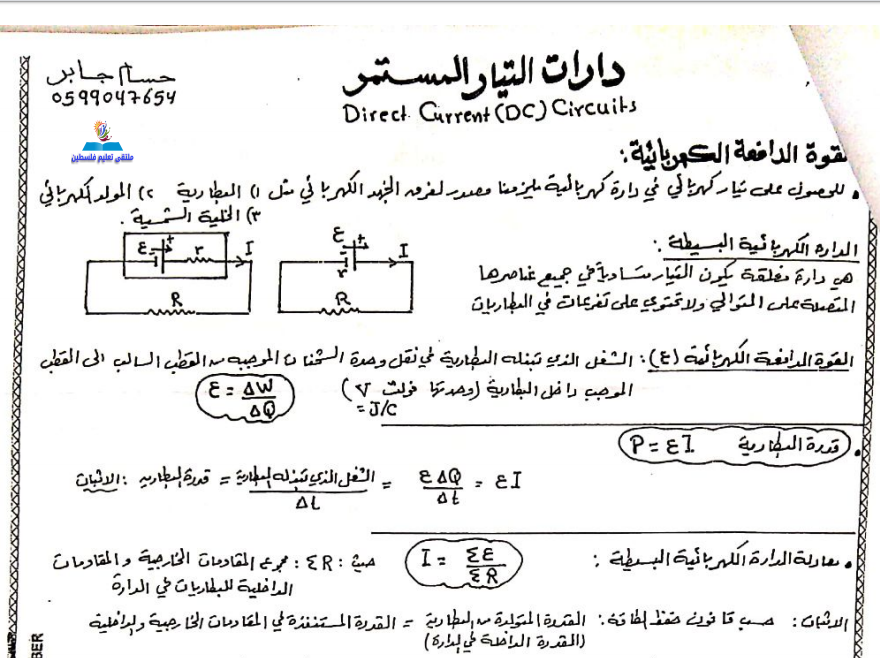 دارات التيار المستمر
Direct Current (DC) Circuits
حسام جابر
0599047654
ملتقى تعليم فلسطين
لقوة الدافعة الكهربائية:
• للحصول على تيار كهربائي في دارة كهربائية يلزمنا مصدر لفرق الجهد الكهربائي مثل ١) البطارية ٢) المولد الكهربائي
٣) الخلية الشمسية.
الدارة الكهربائية البسيطة:
هي دارة مغلقة يكون التيار متساوياً في جميع عناصرها
المتصلة على التوالي ولا تحتوي على تفرعات في البطاريات
ε - + r I
R
ε - + I
r
R
القوة الدافعة الكهربائية (ε): الشغل الذي تبذله البطارية في نقل وحدة الشحنات الموجبة من القطب السالب الى القطب
الموجب داخل البطارية (وحدتها فولت V)
= J/C
ε = ΔW/ΔQ
• قدرة البطارية P = εI
الاثبات: قدرة البطارية = الشغل الذي تبذله البطارية/Δt = εΔQ/Δt = εI
• معادلة الدارة الكهربائية البسيطة: I = Σε/ΣR حيث: ΣR: مجموع المقاومات الخارجية والمقاومات
الداخلية للبطاريات في الدارة
الاثبات: حسب قانون حفظ الطاقة: القدرة المتولدة من البطارية = القدرة المستنفذة في المقاومات الخارجية والداخلية
(القدرة الداخلة في الدارة)
BER